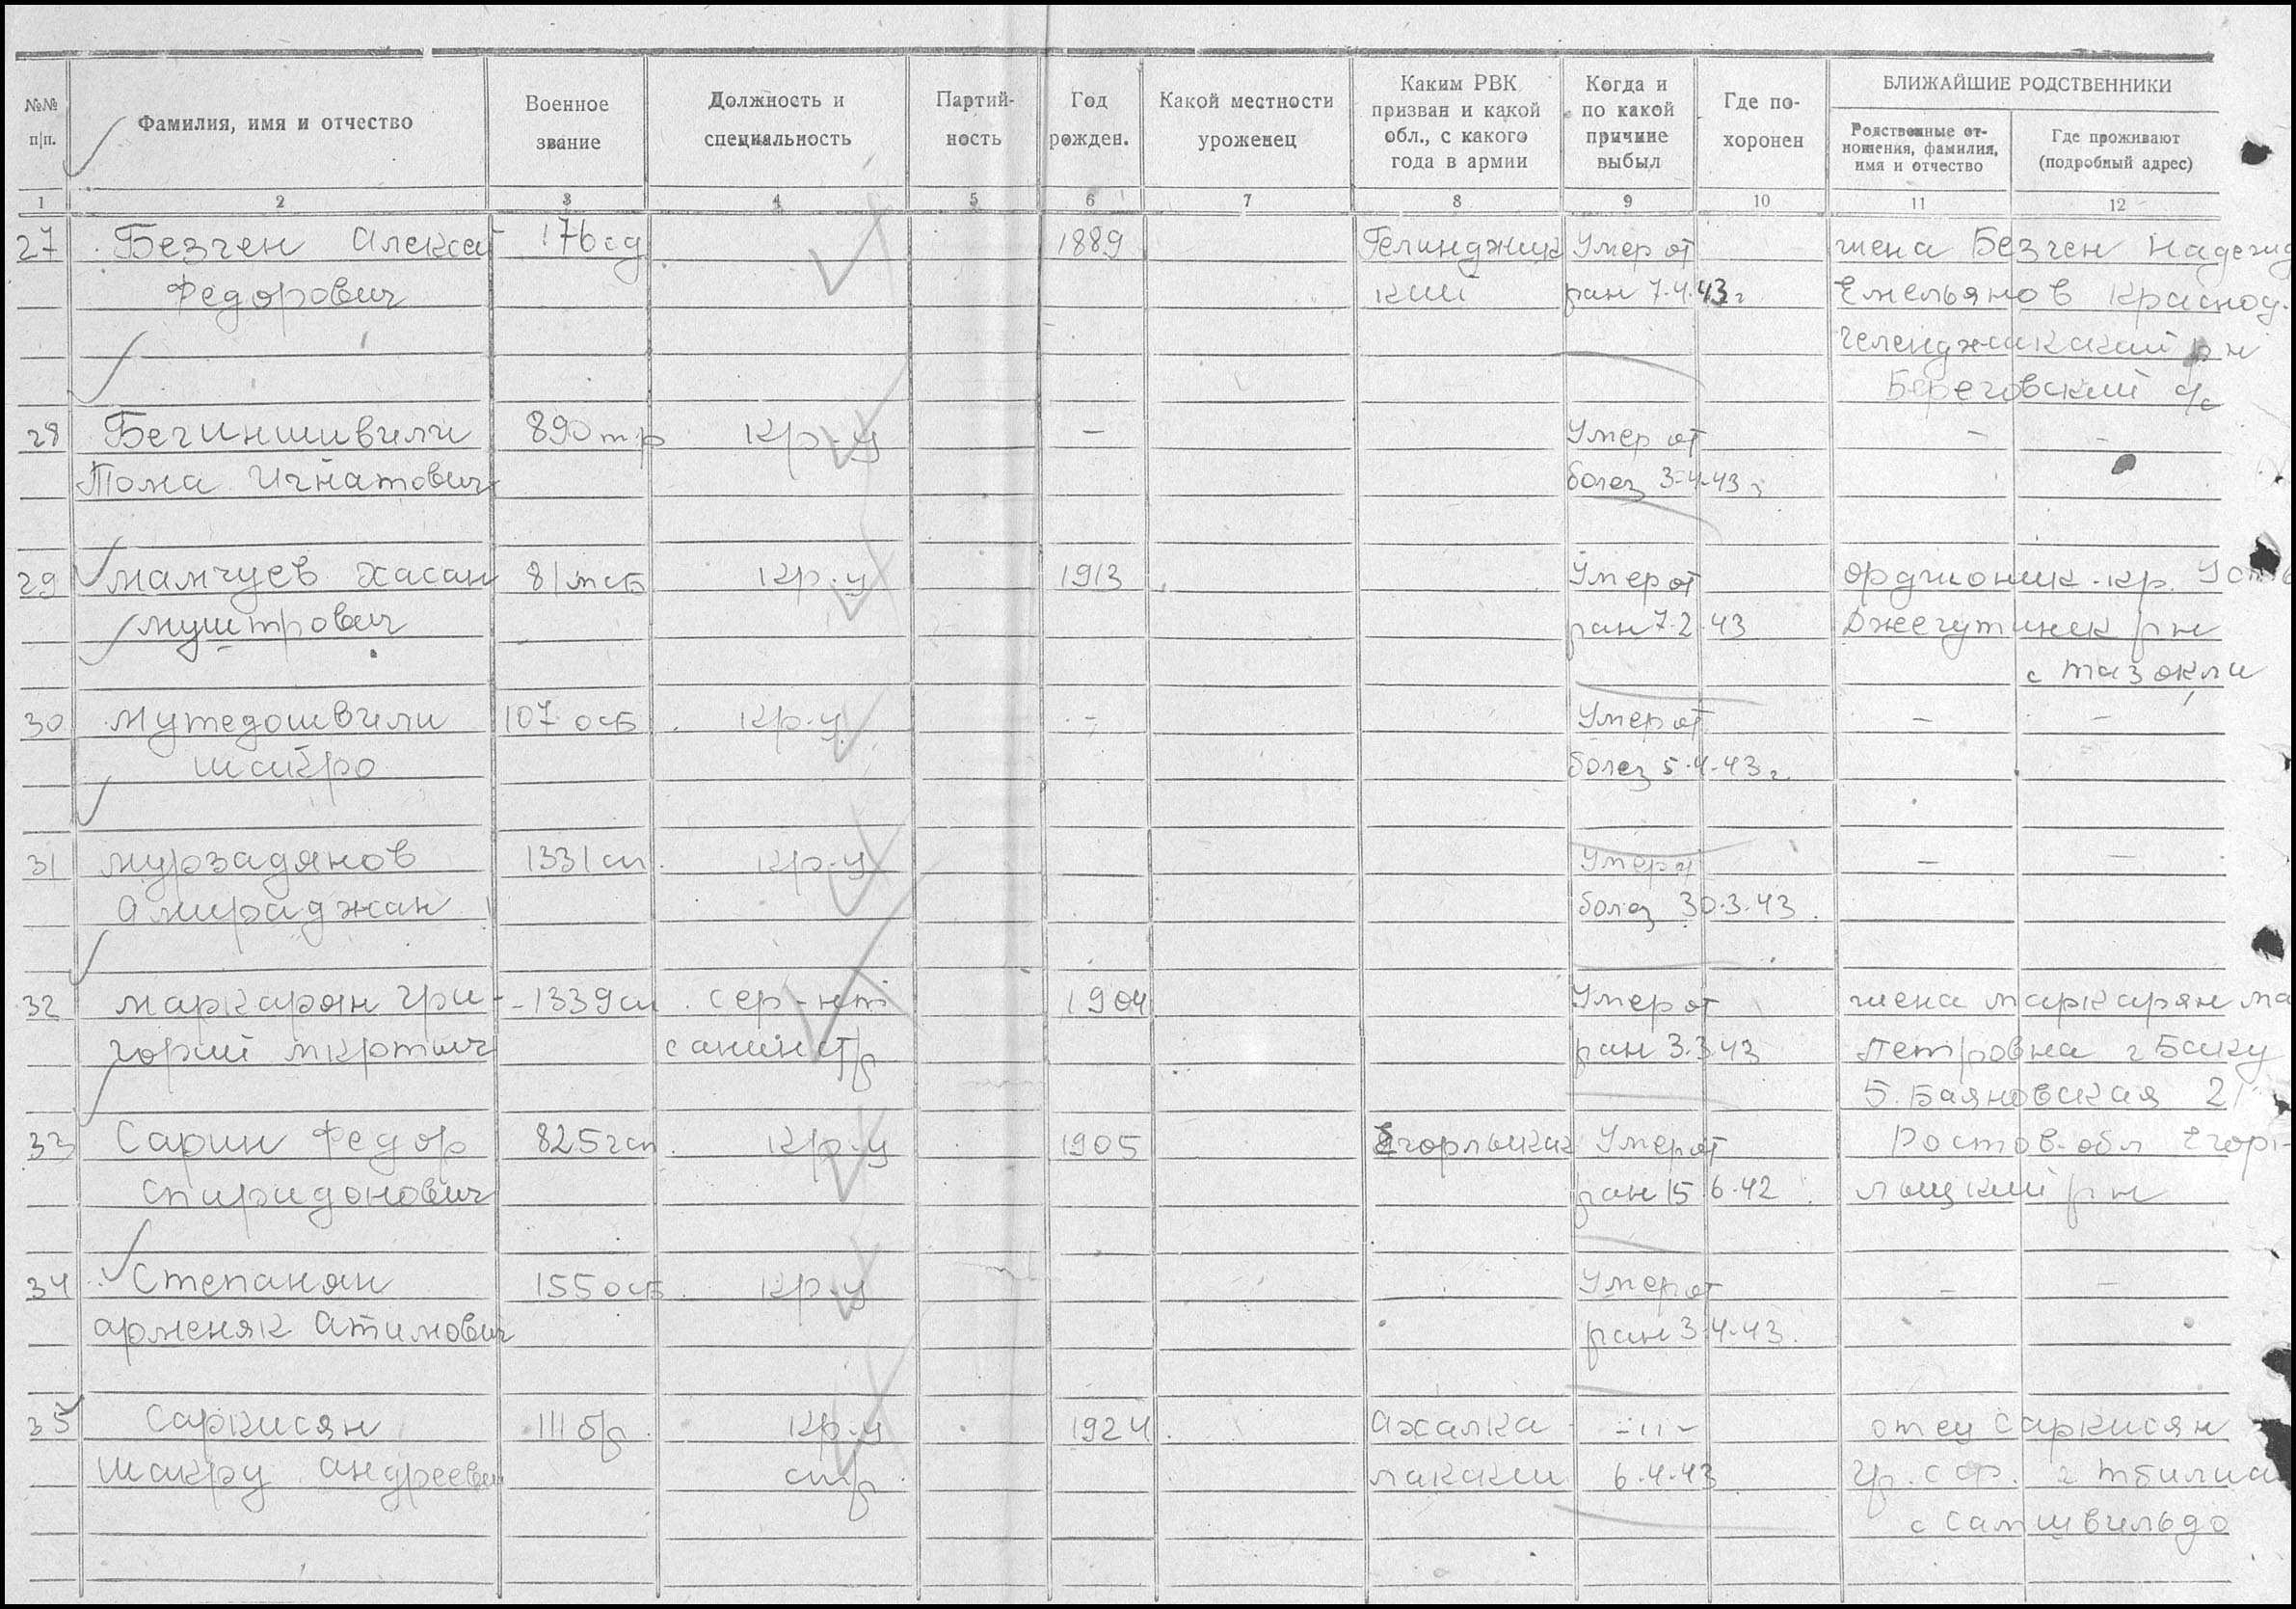 №№ п/п.
Фамилия, имя и отчество
Военное звание
Должность и специальность
Партий-ность
Год рожден.
Какой местности уроженец
Каким РВК призван и какой обл., с какого года в армии
Когда и по какой причине выбыл
Где по-хоронен
БЛИЖАЙШИЕ РОДСТВЕННИКИ
Родственные от-ношения, фамилия, имя и отчество
Где проживают (подробный адрес)
1 2 3 4 5 6 7 8 9 10 11 12
27 Безчен Алексе 176 сд 1889 Гелинджик Умер от жена Безчен Надежд
Федорович кий ран 7.4.43г Емельянов Красноу.
Геленджикский р н
Береговский с/с
28 Бегиншивили 890 т.р кр-ц – Умер от – –
Тома Игнатович болез 3-4-43 г
29 Мамчуев Хасан 81 мсб кр-ц 1913 Умер от орджоник. кр. Усть
муштрович ран 7.2.43 Джегутинск р н
с Тазокли
30 Мутедошвили 107 осб кр.ц – Умер от – –
Шакро болез 5.4.43г.
31 Мурзадянов 1331 сп кр-ц Умер от – –
Амираджан болез 30.3.43.
32 Маркарян Гри- 1339 сп сер-нт 1904 Умер от жена Маркарян Ма
горий Мкртич санинстр ран 3.3.43 Петровна г Баку
Б. Баяновская 21
33 Сарин Федор 825 гсп кр-ц 1905 Егорлыкик Умер от Ростов-обл Егор-
Спиридонович ран 15.6.42 лыцкий р н
34 Степанян 155 осб кр.ц Умер от – –
Арменяк Атимович ран 3.4.43.
35 Саркисян 111 бр. кр-ц 1924 Ахалка -"- отец Саркисян
Шакру Андреевич стр. лакски 6.4.43 Гр. сср. г Тбилис
с Самшвильдо